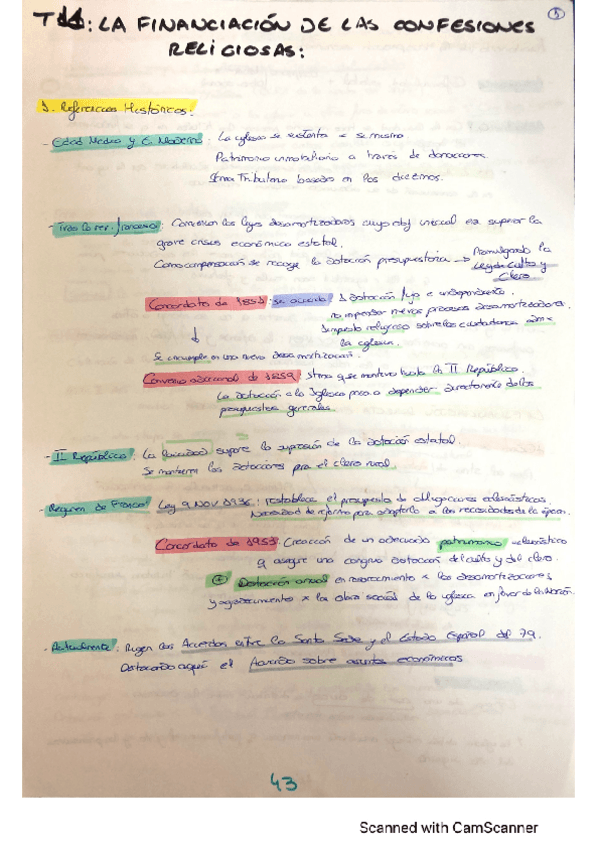 T11: LA FINANCIACIÓN DE LAS CONFESIONES
RELIGIOSAS:
1. Referencias Históricas:
- Edad Media y E. Moderna: La iglesia se sustenta a si misma
Patrimonio inmobiliario a través de donaciones.
Stma Tributario basados en los diezmos.
- Tras la rev. francesa: Comienzan las leyes desamortizadoras cuyo obj inicial era superar la
grave crisis económica estatal.
Como compensación se recoge la dotación presupuestaria → Promulgando la
Ley de Culto y
Clero
Concordato de 1851: se acuerda: dotación fija e independiente.
no emprender nuevos procesos desamortizadores.
Impuesto religioso sobre los ciudadanos
la iglesia.
↓
Se incumple en una nueva desamortización.
Convenio adicional de 1859: stma q se mantuvo hasta la II República.
La dotación a la Iglesia pasa a depender directamente de los
presupuestos generales.
- II República: La supresión de la dotación estatal.
Se mantienen las dotaciones para el clero rural.
- Regimen de Franco: Ley 9 Nov 1936: restablece el presupuesto de obligaciones eclesiásticas.
Necesidad de reforma para adaptarlo a las necesidades de la época.
Concordato de 1953: Creación de un adecuado patrimonio eclesiástico
q asegure una congrua dotación del culto y del clero.
+ Dotación anual en x las desamortizaciones
y agradecimiento x la obra social de la iglesia en favor de la Nación.
- Actualmente: Rigen los Acuerdos entre la Santa Sede y el Estado Español del 79.
Destacando aquí el Acuerdo sobre asuntos económicos
43
Scanned with CamScanner